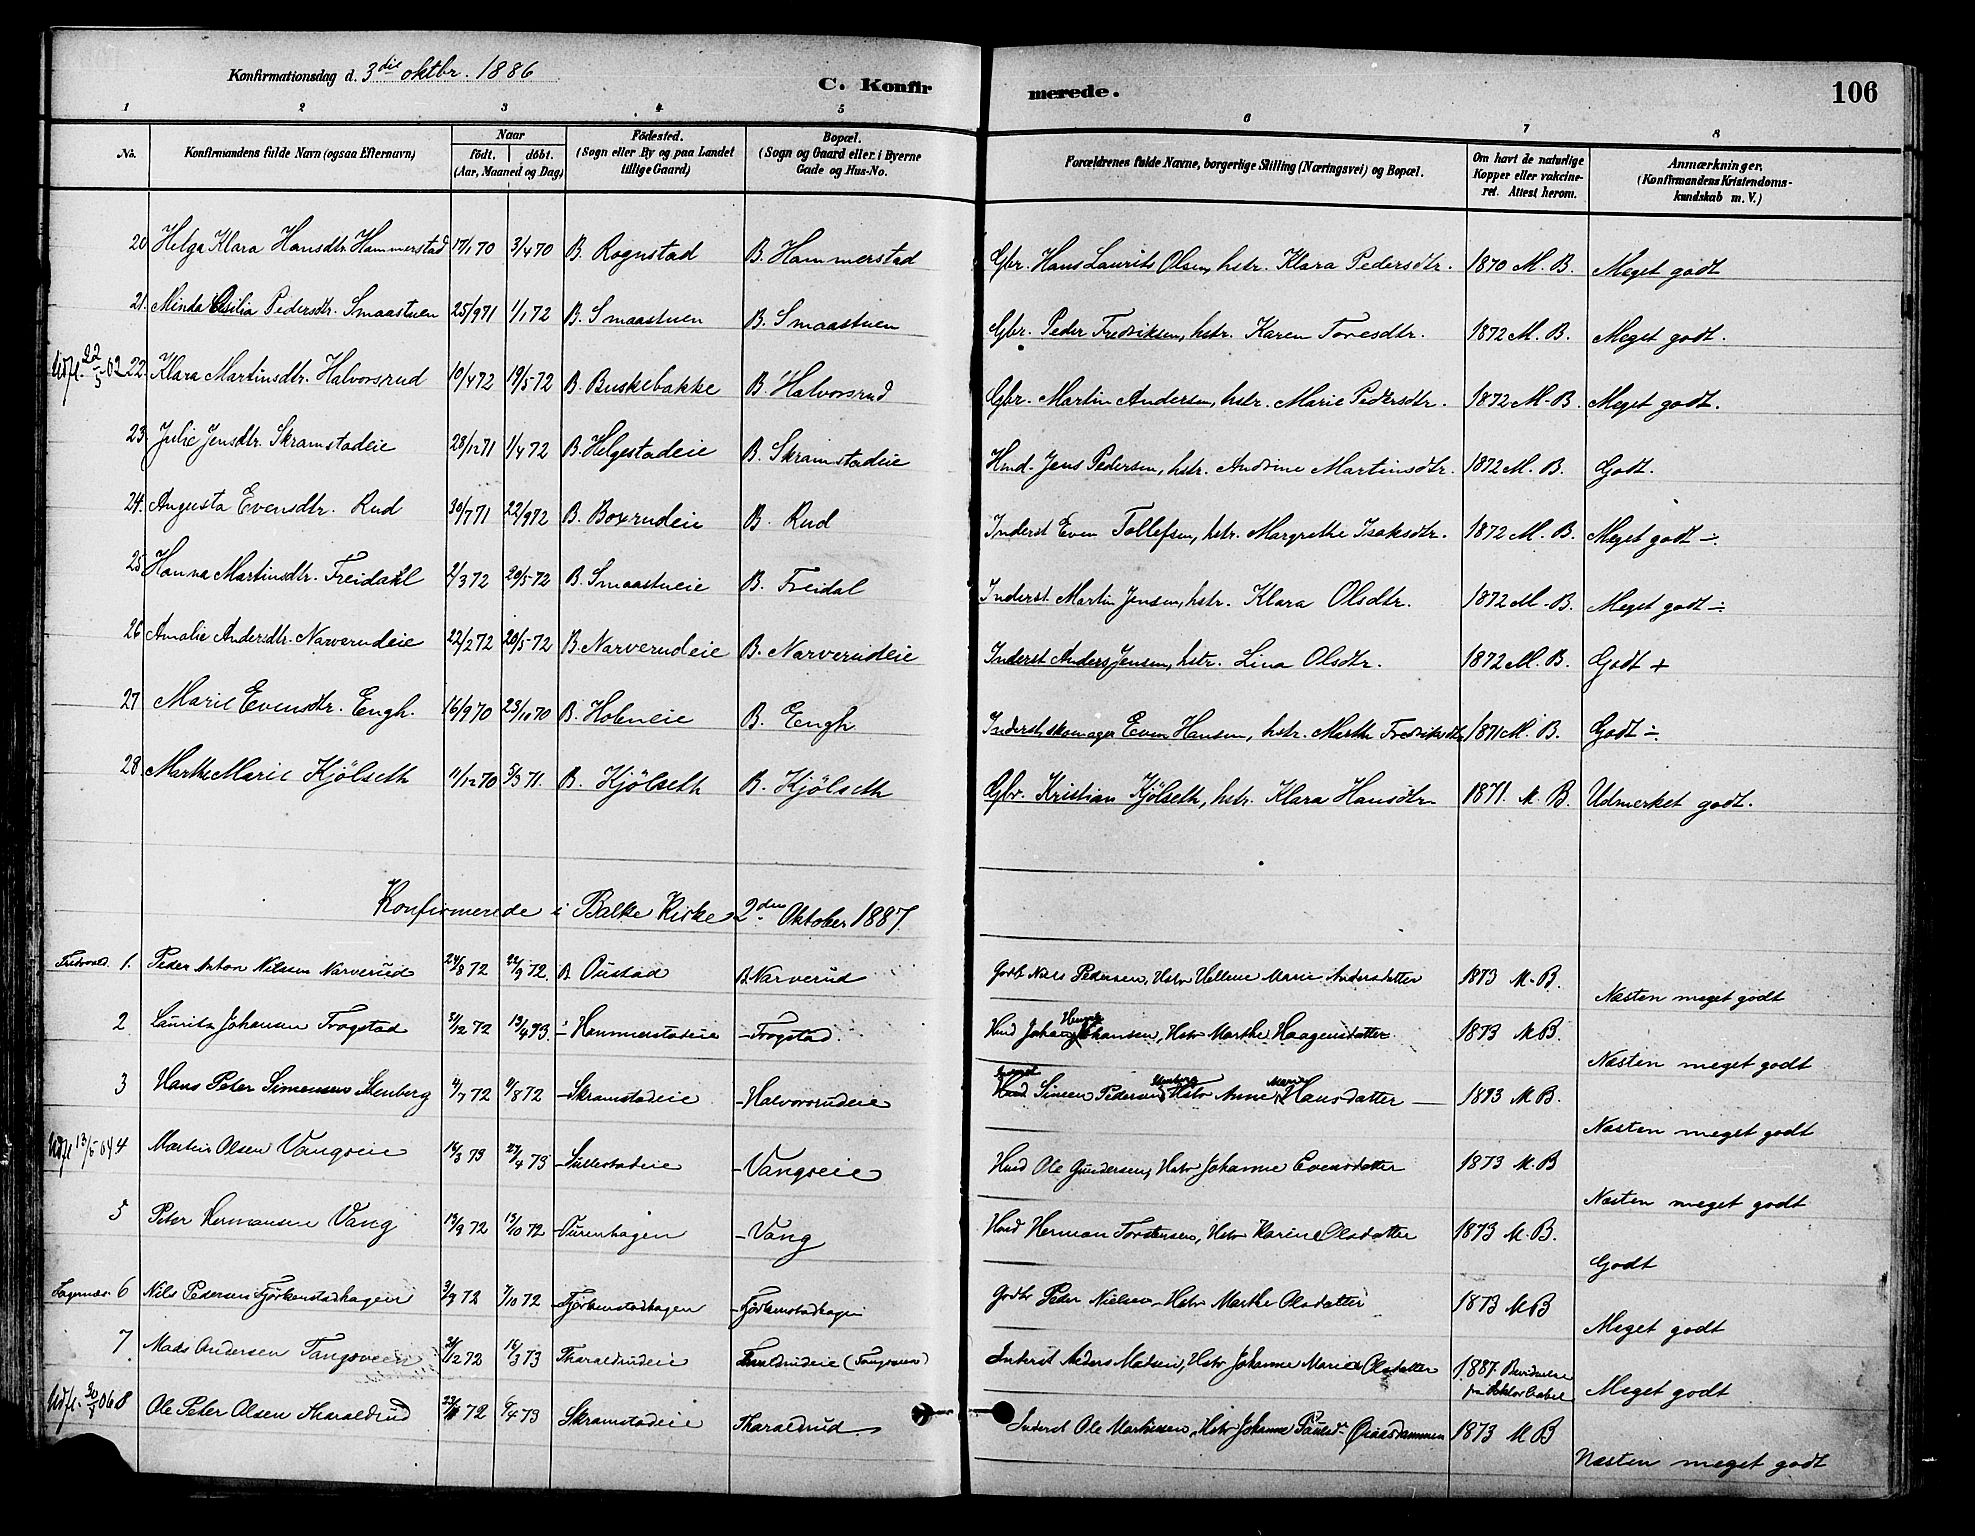 Konfirmationsdag d. 3die oktbr. 1886
C. Konfirmerede.
106
1 2 3 4 5 6 7 8
No. Konfirmandens fulde Navn (ogsaa Efternavn) Naar födt. döbt. (Aar, Maaned og Dag) Födested. (Sogn eller By og paa Landet tillige Gaard) Bopæl. (Sogn og Gaard eller i Byerne Gade og Hus-No.) Forældrenes fulde Navne, borgerlige Stilling (Næringsvei) og Bopæl. Om havt de naturlige Kopper eller vakcineret. Attest herom. Anmærkninger. (Konfirmandens Kristendomskundskab m. V.)
20 Helga Klara Hansdtr. Hammerstad 17/1 70 3/4 70 B. Rognstad B. Hammerstad Gbr. Hans Laurits Olsen, hstr. Klara Pedersdtr. 1870 M. B. Meget godt
21. Minda Cesilia Pedersdtr. Smaastuen 25/9 71 1/1 72 B. Smaastuen B. Smaastuen Gbr. Peder Fredriksen, hstr. Karen Toresdtr. 1872 M. B. Meget godt.
Udfl. 22/5 02 22. Klara Martinsdtr. Halvorsrud 10/4 72 19/5 72 B. Buskebakke B. Halvorsrud Gbr. Martin Andersen, hstr. Marie Pedersdtr. 1872 M. B. Meget godt.
23. Julie Jensdtr. Skramstadeie 28/12 71 1/4 72 B. Helgestadeie B. Skramstadeie Hmd. Jens Pedersen, hstr. Andrine Martinsdtr. 1872 M. B. Godt.
24. Augusta Evensdtr. Rud 30/7 71 22/9 72 B. Boxrudeie B. Rud Inderst Even Tollefsen, hstr. Margrethe Isaksdtr. 1872 M. B. Meget godt ÷.
25 Hanna Martinsdtr. Freidahl 2/3 72 20/5 72 B. Smaastueie B. Freidal Inderst. Martin Jensen, hstr. Klara Olsdtr. 1872 M. B. Meget godt ÷
26 Amalie Andersdtr. Narverudeie 22/2 72 20/5 72 B. Narverudeie B. Narverudeie Inderst Anders Jensen, hstr. Lina Olsdtr. 1872 M. B. Godt +
27 Marie Evensdtr. Engh. 16/9 70 23/10 70 B. Holmeie B. Engh. Inderst, skomager Even Hansen, hstr. Marthe Fredriksdtr 1871 M. B. Godt ÷.
28 Marthe Marie Kjölseth 11/12 70 5/3 71. B. Kjölseth B. Kjölseth Gbr. Kristian Kjölseth, hstr. Klara Hansdtr. 1871. M. B. Udmerket godt.
Konfirmerede i Balke Kirke 2den Oktober 1887.
1. Peder Anton Nilssen Narverud 24/8 72 22/9 72. B Oustad B. Narverud Godb Niels Pedersen, Hstr Hellene Marie Andersdatter 1873 M. B. Næsten meget godt
2 Lauritz Johansen Trogstad 31/12 72 13/4 73. - Hammerstadeie - Trogstad. Hmd Johan Henrik Johansen, Hstr Marthe Haagensdatter 1873 M.B. Næsten meget godt
3 Hans Peter Simensen Stenberg 4/7 72 4/8 72 - Skramstadeie - Halvorsrudeie Simen Pedersen Stenberg Hstr Anne Marie Hansdatter 1873 M.B. Næsten meget godt
Udfl 13/5 04 4 Martin Olsen Vangseie 14/3 73 27/4 73 - Sullestadeie - Vangseie Hmd Ole Gundersen, Hstr Johanne Evensdatter 1873 M.B Næsten meget godt
5 Peter Hermansen Vang 13/9 72 13/10 72 - Turenhagen - Vang Hmd Herman Torstensen, Hstr Karine Olsdatter 1873 M.B. Godt
6 Nils Pedersen Fjörkenstadhagen 3/9 72 7/10 72 - Fjörkenstadhagen - Fjörkenstadhagen Godb Peder Nielsen Hstr Marthe Olsdatter 1873 M.B Meget godt
7. Mads Andersen Tangsveen 31/12 72 14/3 73 Tharaldrudeie Tharaldrudeie (Tangsveen) Inderst Anders Madsen, Hstr Johanne Marie Olsdatter 1887. Meget godt
Udfl. 30/1 06 8 Ole Peter Olsen Tharaldrud 72 6/4 73 Skramstadeie Tharaldrud Inderst Ole Martinsen, Hstr Johanne Paulsd. 1873 M B Næsten meget godt